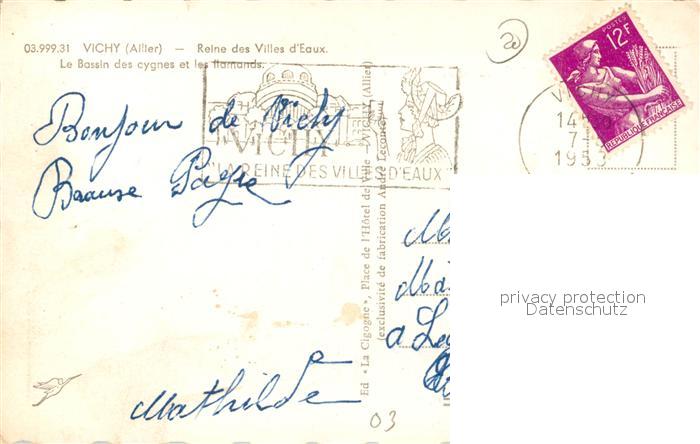 03.999.31 VICHY (Allier) — Reine des Villes d'Eaux.
Le Bassin des cygnes et les flamands.
Bonjour de Vichy
Mathilde
VICHY
LA REINE DES VILLES D'EAUX
Ed « La Cigogne », Place de l'Hôtel de Ville — VICHY (Allier)
(exclusivité de fabrication André Leconte)
20
POSTES
12F
REPUBLIQUE FRANÇAISE
14
7
195
a
privacy protection
Datenschutz
03